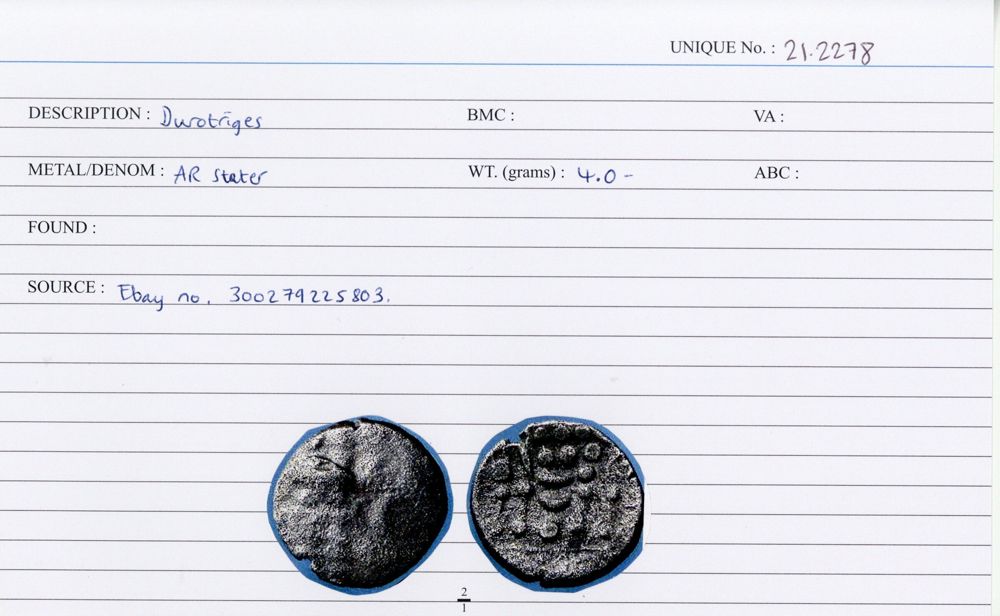 UNIQUE No. : 21.2278
DESCRIPTION : Durotriges BMC : VA :
METAL/DENOM : AR stater WT. (grams) : 4.0 - ABC :
FOUND :
SOURCE : Ebay no. 300279225803.
2
1